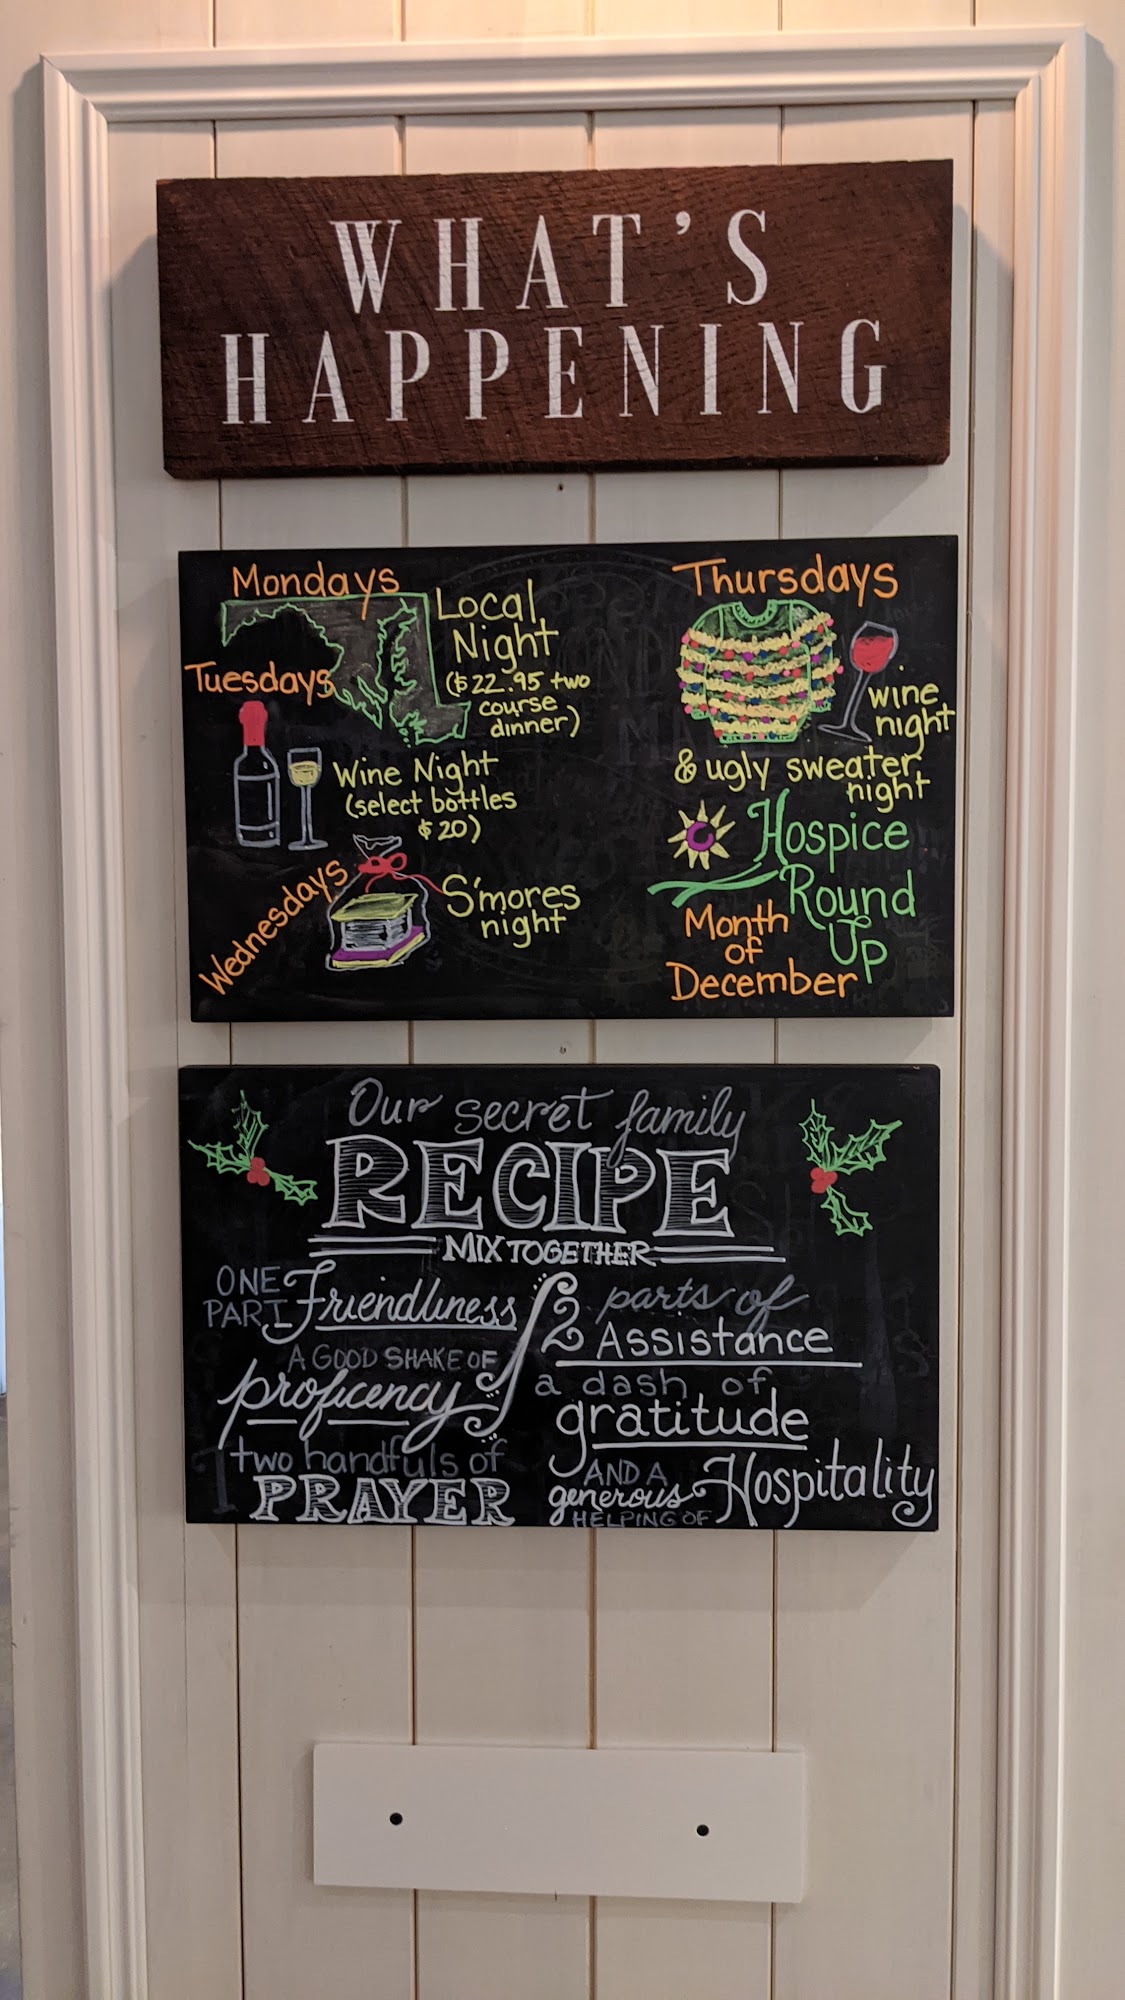 WHAT'S
HAPPENING
Mondays
Local
Night
($22.95 two
course
dinner)
Tuesdays
Wine Night
(select bottles
$20)
Wednesdays
S'mores
night
Thursdays
wine
night
& ugly sweater
night
Hospice
Round
Up
Month
of
December
Our secret family
RECIPE
MIX TOGETHER
ONE
PART Friendliness
A GOOD SHAKE OF
proficency
two handfuls of
PRAYER
2 parts of
Assistance
a dash of
gratitude
AND A
generous
HELPING OF
Hospitality